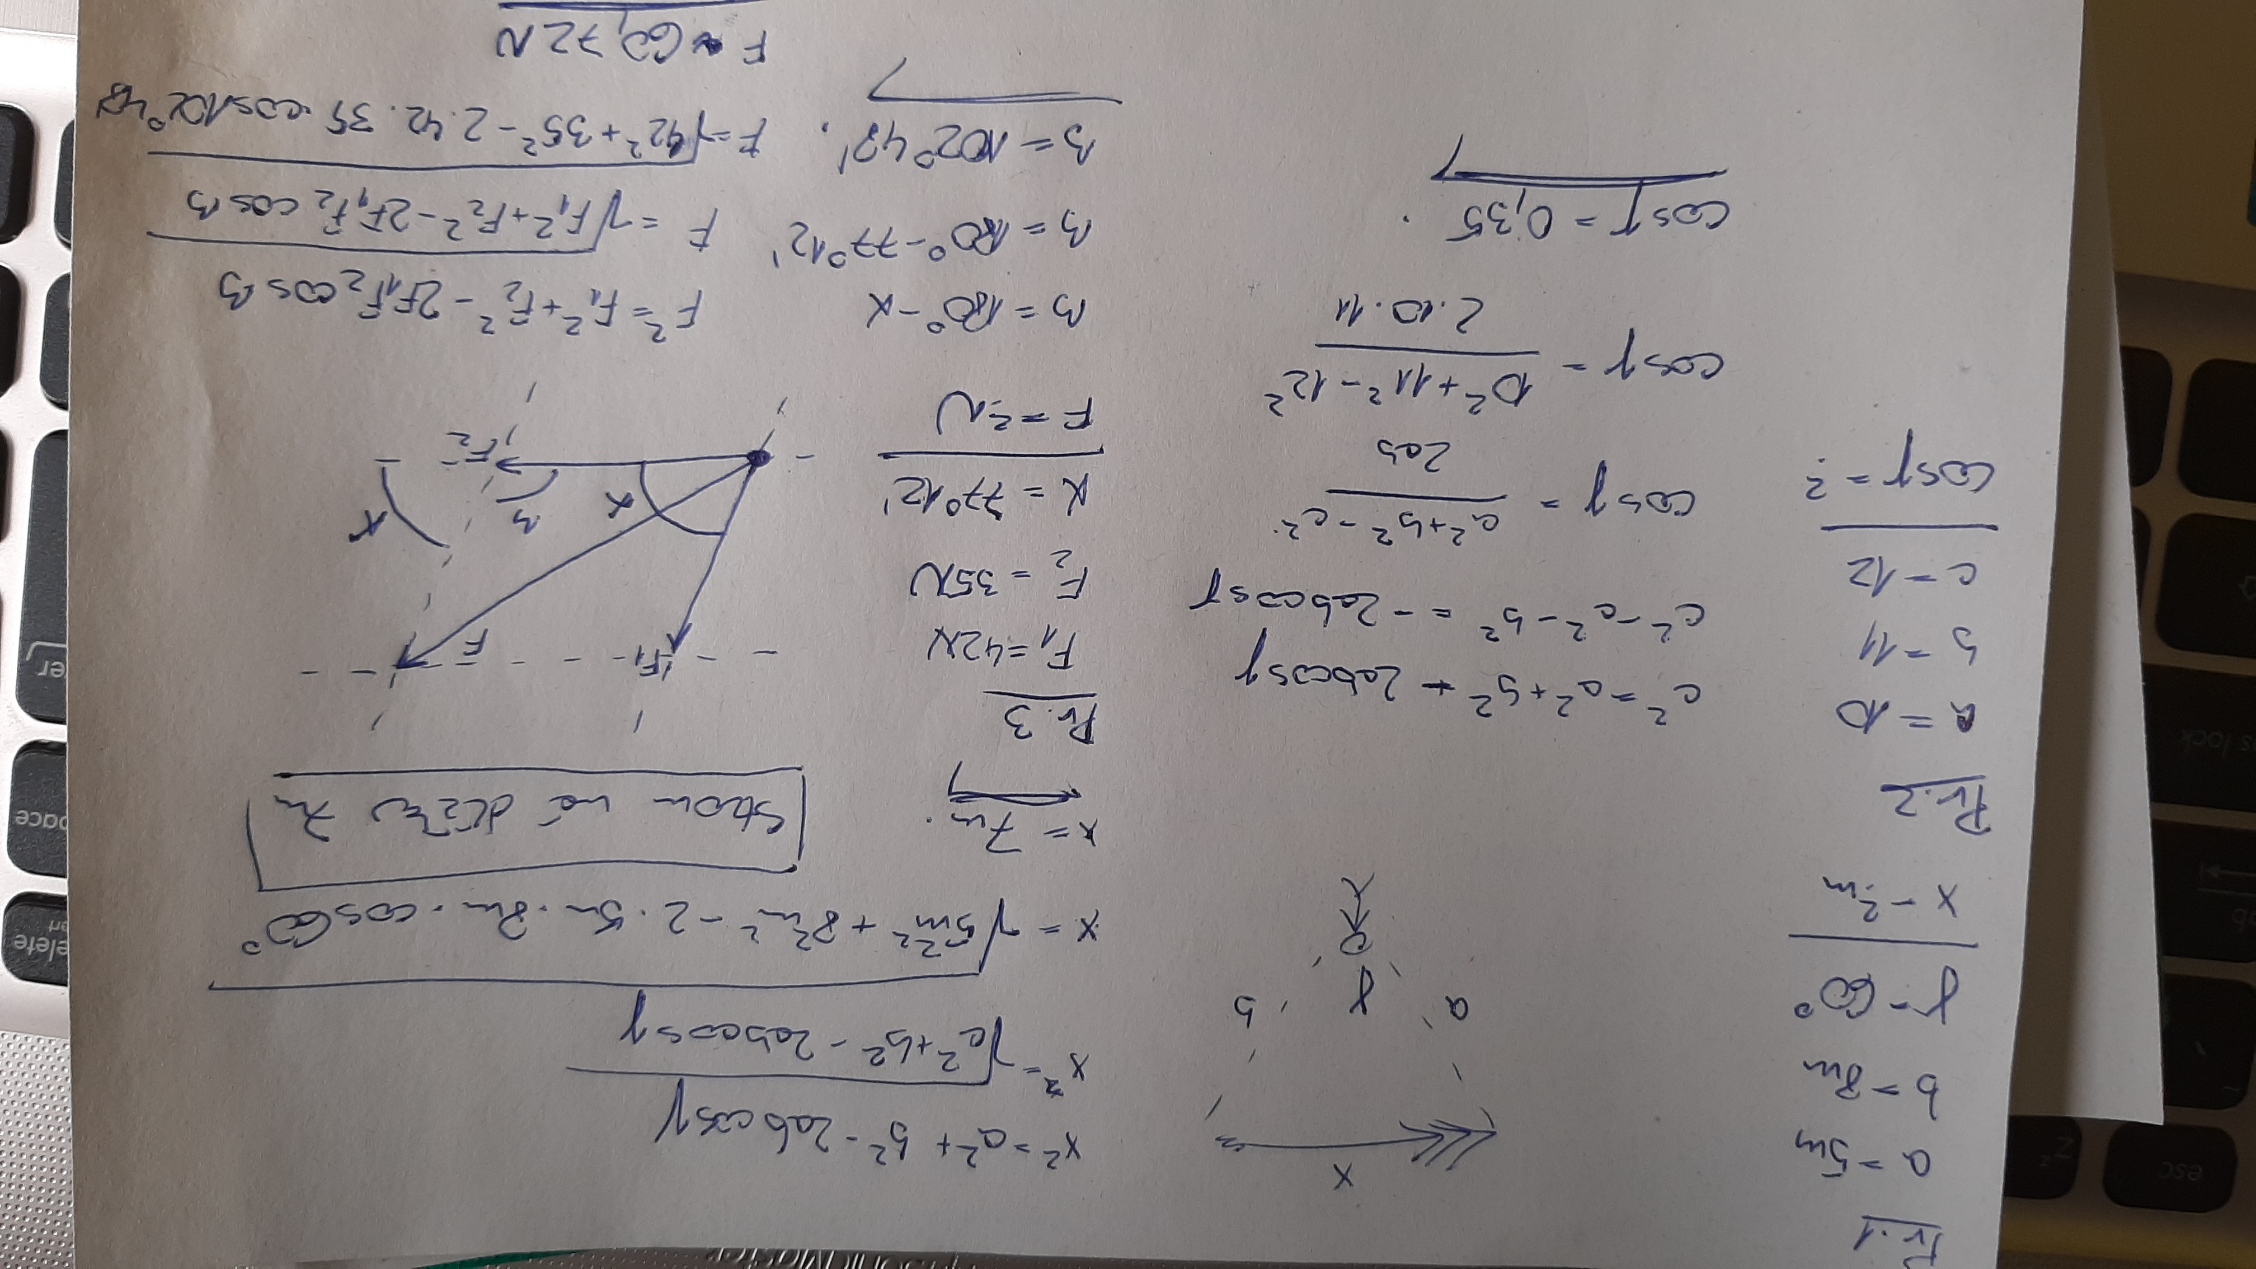 Pr.1
a = 5m
b = 8m
γ = 60°
x = ? m
x
a
γ
b
x² = a² + b² - 2ab cosγ
x = √a² + b² - 2abcosγ
x = √5²m² + 8²m² - 2 . 5m . 8m . cos60°
x = 7m
Strom má dĺžku 7m
Pr.2
a = 10
b = 11
c = 12
cosγ = ?
c² = a² + b² - 2abcosγ
c² - a² - b² = - 2abcosγ
cosγ = a² + b² - c² / 2ab
cosγ = 10² + 11² - 12² / 2.10.11
cosγ = 0,35
Pr.3
F₁ = 42N
F₂ = 35N
α = 77°12'
F = ? N
F₁
F
α
β
F₂
α
β = 180° - α
β = 180° - 77°12'
β = 102°48'
F² = F₁² + F₂² - 2F₁F₂ cosβ
F = √F₁² + F₂² - 2F₁F₂ cosβ
F = √42² + 35² - 2.42.35.cos102°48
F ≈ 60,72N
delete
esc